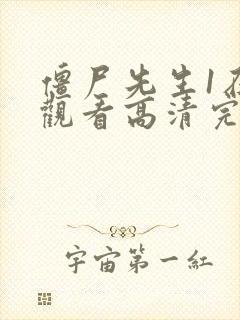 僵尸先生1在
觀看高清完
宇宙第一紅